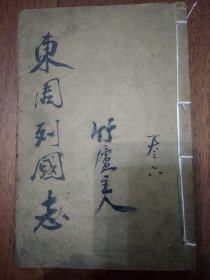 東周列國志
竹廬主人
卷六